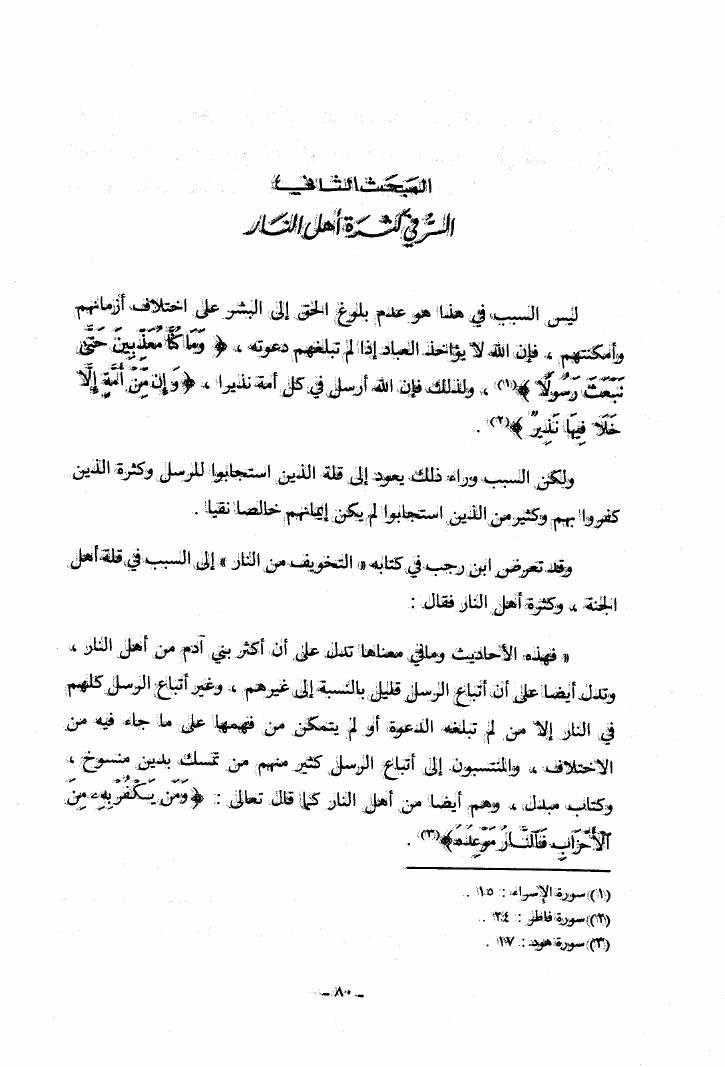 المبحث الثاني
السر في كثرة أهل النار
ليس السبب في هذا هو عدم بلوغ الحق إلى البشر على اختلاف أزمانهم
وأمكنتهم ، فإن الله لا يؤاخذ العباد إذا لم تبلغهم دعوته ، ﴿ وَمَا كُنَّا مُعَذِّبِينَ حَتَّىٰ
نَبْعَثَ رَسُولًا ﴾(١) ، ولذلك فإن الله أرسل في كل أمة نذيرا ، ﴿ وَإِن مِّنْ أُمَّةٍ إِلَّا
خَلَا فِيهَا نَذِيرٌ ﴾(٢) .
ولكن السبب وراء ذلك يعود إلى قلة الذين استجابوا للرسل وكثرة الذين
كفروا بهم وكثير من الذين استجابوا لم يكن إيمانهم خالصا نقيا .
وقد تعرض ابن رجب في كتابه « التخويف من النار » إلى السبب في قلة أهل
الجنة ، وكثرة أهل النار فقال :
« فهذه الأحاديث وما في معناها تدل على أن أكثر بني آدم من أهل النار ،
وتدل أيضا على أن أتباع الرسل قليل بالنسبة إلى غيرهم ، وغير أتباع الرسل كلهم
في النار إلا من لم تبلغه الدعوة أو لم يتمكن من فهمها على ما جاء فيه من
الاختلاف ، والمنتسبون إلى أتباع الرسل كثير منهم من تمسك بدين منسوخ ،
وكتاب مبدل ، وهم أيضا من أهل النار كما قال تعالى : ﴿ وَمَن يَكْفُرْ بِهِۦ مِنَ
ٱلْأَحْزَابِ فَٱلنَّارُ مَوْعِدُهُ ﴾(٣) .
(١) سورة الإسراء : ١٥ .
(٢) سورة فاطر : ٢٤ .
(٣) سورة هود : ١٧ .
ــ ٨٠ ــ